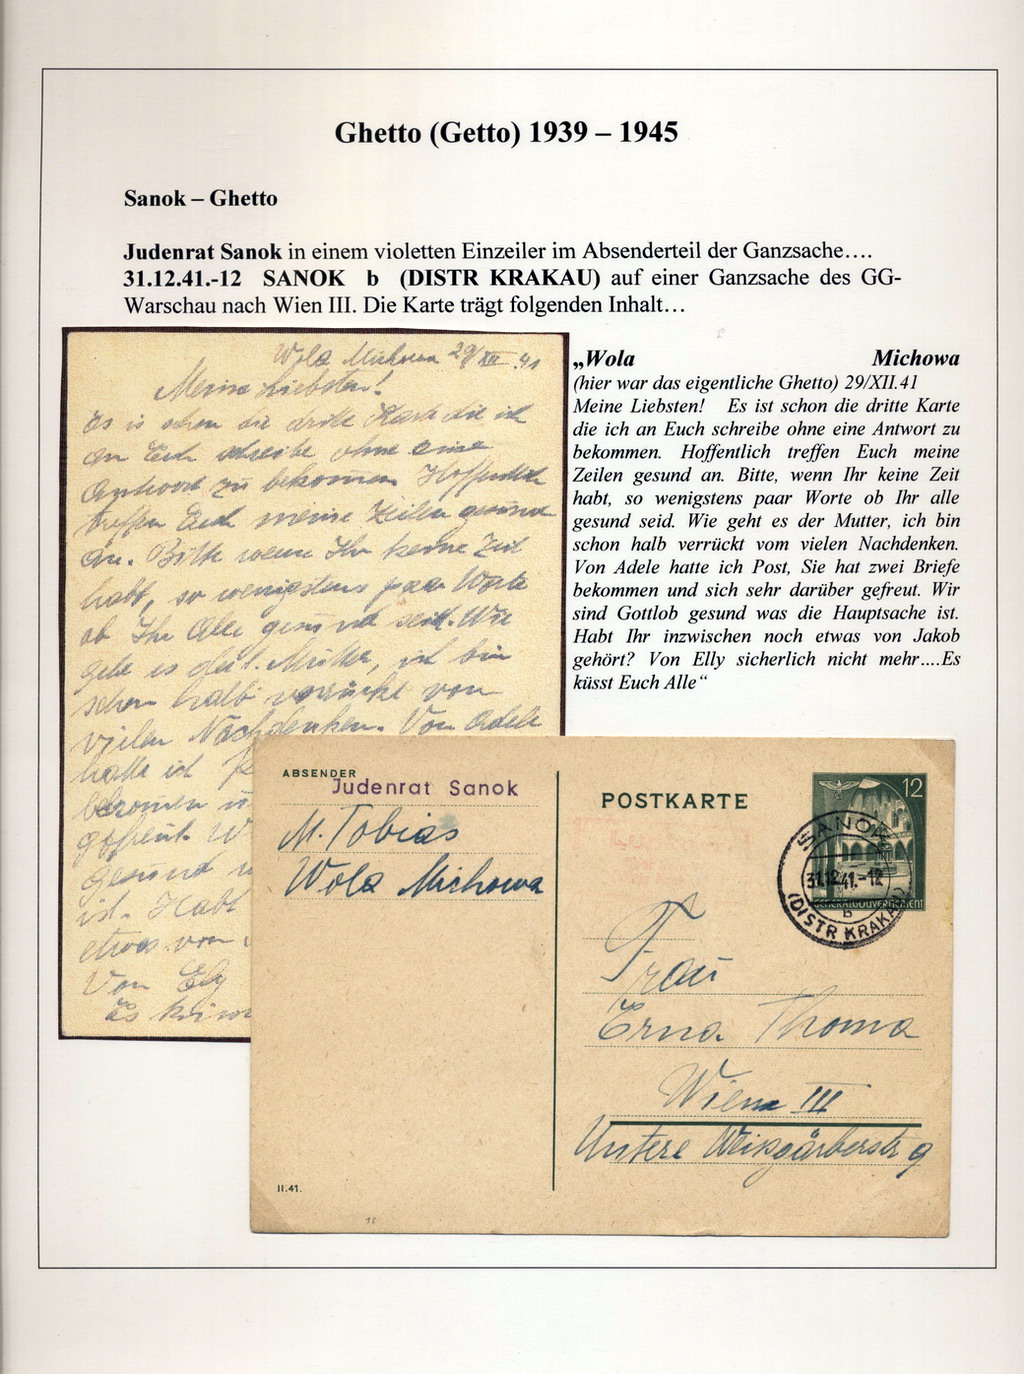 Ghetto (Getto) 1939 – 1945
Sanok – Ghetto
Judenrat Sanok in einem violetten Einzeiler im Absenderteil der Ganzsache….
31.12.41.-12 SANOK b (DISTR KRAKAU) auf einer Ganzsache des GG-
Warschau nach Wien III. Die Karte trägt folgenden Inhalt…
Wola Michowa 29/XII .41
Meine Liebsten!
Es is schon die dritte Karte die ich
an Euch schreibe ohne eine
Antwort zu bekommen Hoffentlich
treffen Euch meine Zeilen gesund
an. Bitte wenn Ihr keine Zeit
habt, so wenigstens paar Worte
ob Ihr Alle gesund seid. Wie
geht es der l. Mutter, ich bin
schon halb verrückt von
vielen Nachdenken. Von Adele
hatte ich
bekomen
gefreut. W
gesund
ist. Habt
etwas von
Von Elly
Es
„Wola Michowa
(hier war das eigentliche Ghetto) 29/XII.41
Meine Liebsten! Es ist schon die dritte Karte
die ich an Euch schreibe ohne eine Antwort zu
bekommen. Hoffentlich treffen Euch meine
Zeilen gesund an. Bitte, wenn Ihr keine Zeit
habt, so wenigstens paar Worte ob Ihr alle
gesund seid. Wie geht es der Mutter, ich bin
schon halb verrückt vom vielen Nachdenken.
Von Adele hatte ich Post, Sie hat zwei Briefe
bekommen und sich sehr darüber gefreut. Wir
sind Gottlob gesund was die Hauptsache ist.
Habt Ihr inzwischen noch etwas von Jakob
gehört? Von Elly sicherlich nicht mehr….Es
küsst Euch Alle“
ABSENDER
Judenrat Sanok
M. Tobias
Wola Michowa
II.41.
POSTKARTE
12
GENERALGOUVERNEMENT
SANOK
31.12.41.-12
b
(DISTR KRAKAU)
Frau
Erna Thoma
Wien III
Untere Weisgärberstr 9